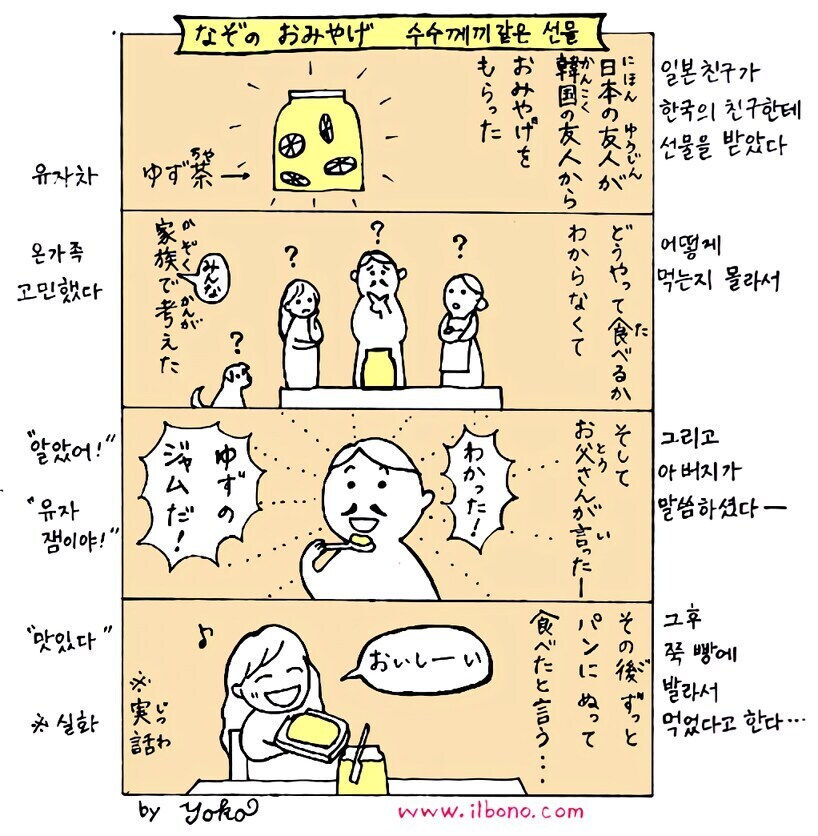 なぞの おみやげ 수수께끼같은 선물
日本の友人が
にほん ゆうじん
韓国の友人から
かんこく
おみやげを
もらった
ゆず茶→
ちゃ
일본친구가
한국의 친구한테
선물을 받았다
유자차
どうやって食べるか
た
わからなくて
? ? ? ?
みんな
家族で考えた
かぞく かんが
어떻게
먹는지 몰라서
온가족
고민했다
そして
お父さんが言ったー
とう い
わかった!
ゆずの
ジャムだ!
그리고
아버지가
말씀하셨다ー
"알았어!"
"유자
잼이야!"
その後ずっと
ご
パンにぬって
食べたと言う・・・
おいしーい
♪
※実話
じつわ
그후
쭉 빵에
발라서
먹었다고 한다・・・
"맛있다"
※실화
by Yoko
www.ilbono.com